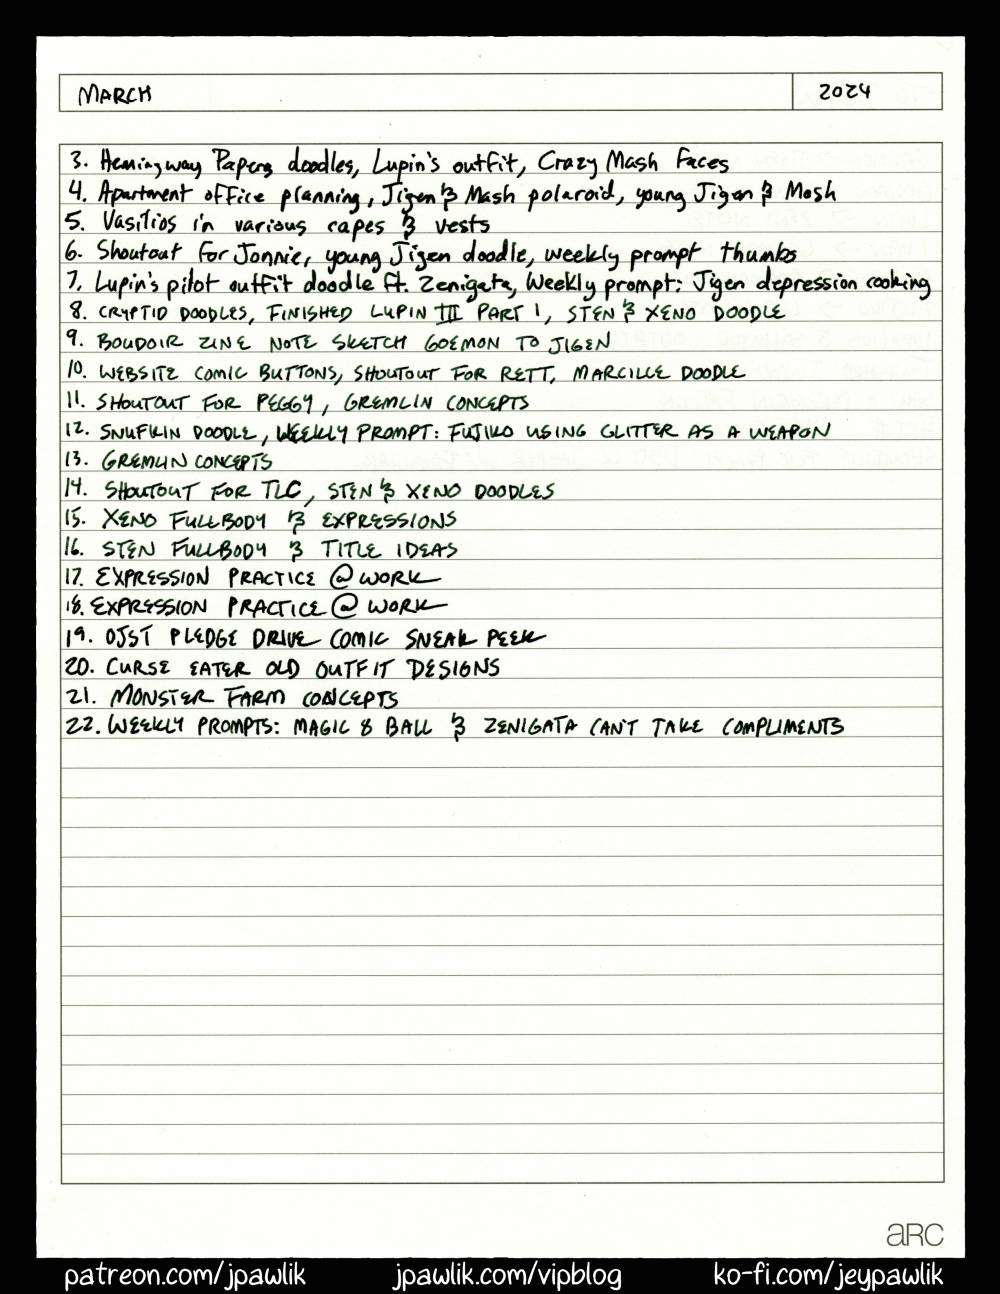 MARCH
2024
3. Hemingway Papers doodles, Lupin's outfit, Crazy Mash Faces
4. Apartment office planning, Jigen & Mash polaroid, young Jigen & Mash
5. Vasilios in various capes & vests
6. Shoutout for Jonnie, young Jigen doodle, weekly prompt thumbs
7. Lupin's pilot outfit doodle ft. Zenigata, Weekly prompt: Jigen depression cooking
8. CRYPTID DOODLES, FINISHED LUPIN III PART 1, STEN & XENO DOODLE
9. BOUDOIR ZINE NOTE SKETCH GOEMON TO JIGEN
10. WEBSITE COMIC BUTTONS, SHOUTOUT FOR RETT, MARCILLE DOODLE
11. SHOUTOUT FOR PEGGY, GREMLIN CONCEPTS
12. SNUFKIN DOODLE, WEEKLY PROMPT: FUJIKO USING GLITTER AS A WEAPON
13. GREMLIN CONCEPTS
14. SHOUTOUT FOR TLC, STEN & XENO DOODLES
15. XENO FULLBODY & EXPRESSIONS
16. STEN FULLBODY & TITLE IDEAS
17. EXPRESSION PRACTICE @ WORK
18. EXPRESSION PRACTICE @ WORK
19. OJST PLEDGE DRIVE COMIC SNEAK PEEK
20. CURSE EATER OLD OUTFIT DESIGNS
21. MONSTER FARM CONCEPTS
22. WEEKLY PROMPTS: MAGIC 8 BALL & ZENIGATA CAN'T TAKE COMPLIMENTS
aRC
patreon.com/jpawlik
jpawlik.com/vipblog
ko-fi.com/jeypawlik